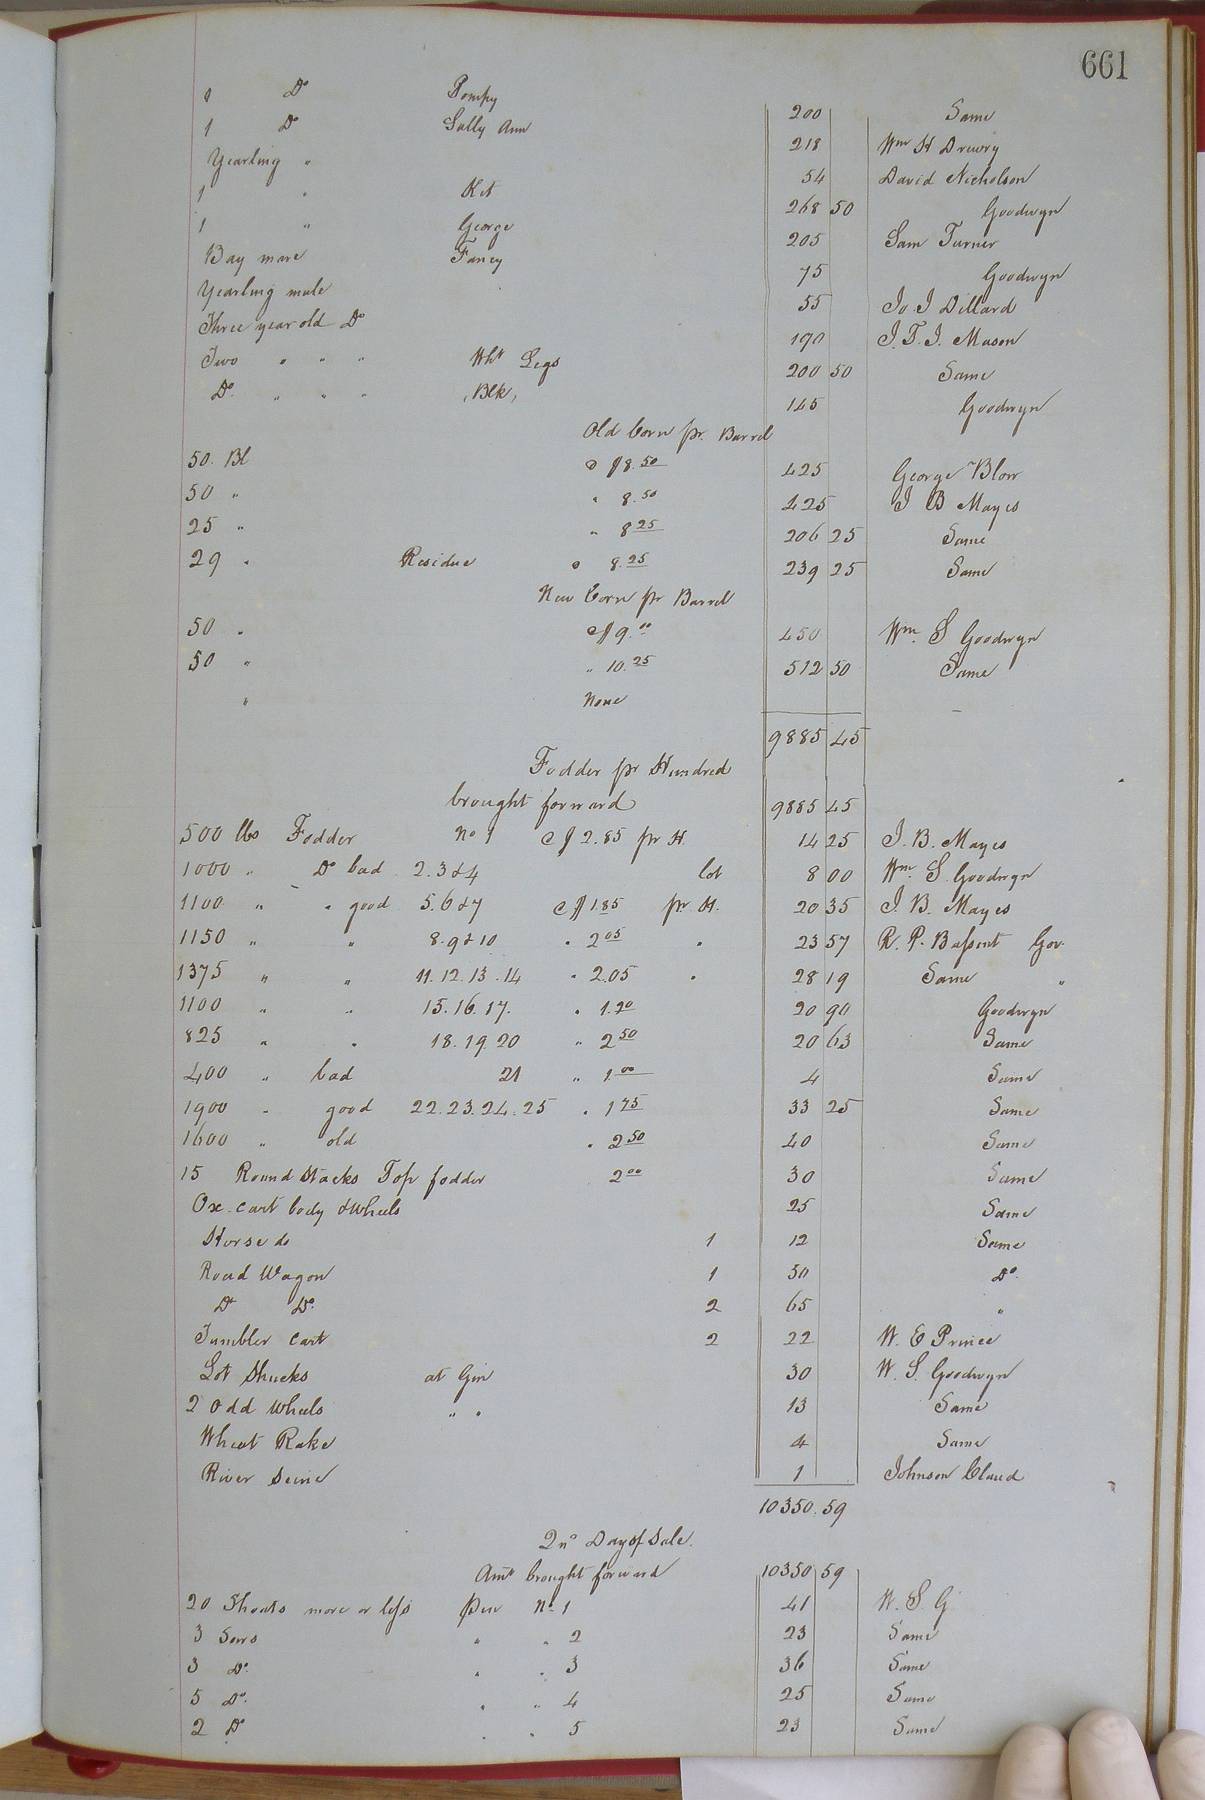 661
1 Do Pompy 200 Same
1 Do Sally Ann 218 Wm H Drewry
Yearling " 54 David Nicholson
1 " Kit 268 50 Goodwyn
1 " George 205 Sam Turner
Bay mare Fancy 75 Goodwyn
Yearling mule 55 Jo. J Dillard
Three year old Do 190 J. T. J. Mason
Two " " " Wht Legs 200 50 Same
Do. " " " "Blk" 145 Goodwyn
Old Corn pr. Barrel
50. Bl @ $8.50 425 George Blow
50 " " 8.50 425 J B Mayes
25 " " 8 25 206 25 Same
29 " Residue @ 8.25 239 25 Same
New Corn pr Barrel
50 " @ $9.00 450 Wm. S Goodwyn
50 " " 10.25 512 50 Same
" None
9885 45
Fodder pr Hundred
brought forward 9885 45
500 lbs Fodder No 1 @ $2.85 pr H. 14 25 J. B. Mayes
1000 " Do bad 2.3&4 lot 8 00 Wm. S. Goodwyn
1100 " " good 5.6&7 @ $1.85 pr. H. 20 35 J. B. Mayes
1150 " " 8.9&10 " 2 05 " 23 57 R. P. Bassent Gov.
1375 " " 11.12.13.14 " 2.05 " 28 19 Same "
1100 " " 15.16.17. " 1.90 20 90 Goodwyn
825 " " 18.19.20 " 2 50 20 63 Same
400 " bad 21 " 1.00 4 Same
1900 " good 22.23.24.25 " 1 75 33 25 Same
1600 " old " 2 50 40 Same
15 Round Stacks Top fodder 2 00 30 Same
Ox-cart body & Wheels 25 Same
Horse do 1 12 Same
Road Wagon 1 50 Do.
Do Do. 2 65 "
Tumbler Cart 2 22 W. E Prince
Lot Shucks at Gin 30 W. S. Goodwyn
2 Odd Wheels " " 13 Same
Wheat Rake 4 Same
River Seine 1 Johnson Claud
10350.59
2nd Day of Sale.
Amt brought forward 10350 59
20 Shoats more or less Pen No. 1 41 W. S G
3 Sows " " 2 23 Same
3 Do. " " 3 36 Same
5 Do. " " 4 25 Same
2 Do " 5 23 Same